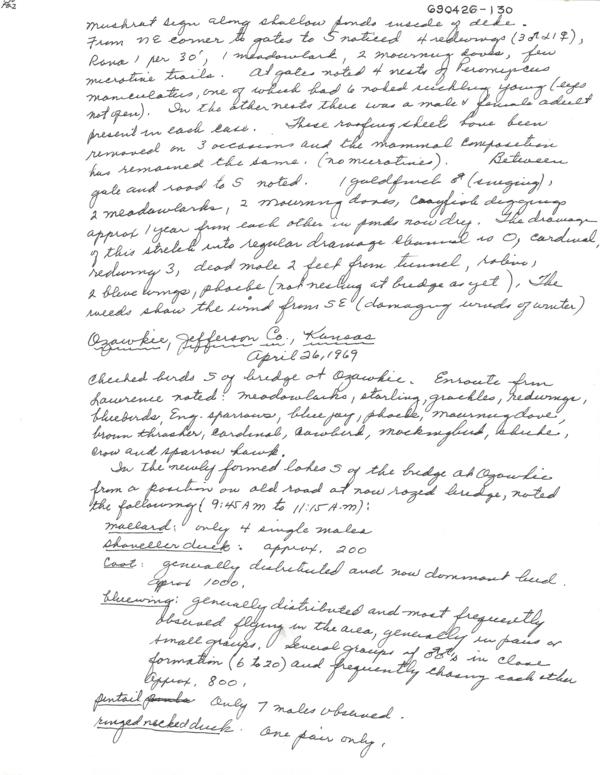 690426-130
muskrat sign along shallow ponds inside of dike.
From NE corner to gates to S noticed 4 redwings (3♂♂1♀),
Rana 1 per 30', 1 meadowlark, 2 mourning doves, few
microtine trails. At gates noted 4 nests of Peromyscus
maniculatus, one of which had 6 naked suckling young (eyes
not open). In the other nests there was a male & female adult
present in each case. These roofing sheets have been
removed on 3 occasions and the mammal composition
has remained the same. (no microtines). Between
gate and road to S noted. 1 goldfinch ♂ (singing),
2 meadowlarks, 2 mourning doves, crayfish diggings
approx 1 year from each other in ponds now dry. The drainage
of this stretch into regular drainage channel is O, cardinal,
redwing 3, dead mole 2 feet from tunnel, robin,
2 blue wings, phoebe (not nesting at bridge as yet). The
weeds show the wind from SE (damaging winds of winter)
Ozawkie, Jefferson Co., Kansas
April 26, 1969
Checked birds S of bridge at Ozawkie. Enroute from
Lawrence noted: meadowlarks, starling, grackles, redwings,
bluebirds, Eng. sparrows, blue jay, phoebe, mourning dove,
brown thrasher, cardinal, cowbird, mockingbird, shrike,
crow and sparrow hawk.
In the newly formed lakes S of the bridge at Ozawkie
from a position on old road at now razed bridge, noted
the following (9:45 AM to 11:15 A.M):
mallard: only 4 single males
shoveller duck: approx. 200
Coot: generally distributed and now dominant bird.
Approx 1000.
bluewing: generally distributed and most frequently
observed flying in the area, generally in pairs or
small groups. Several groups of ♂♂'s in close
formation (6 to 20) and frequently chasing each other
Approx. 800.
pintail Only 7 males observed.
ringed necked duck. One pair only.